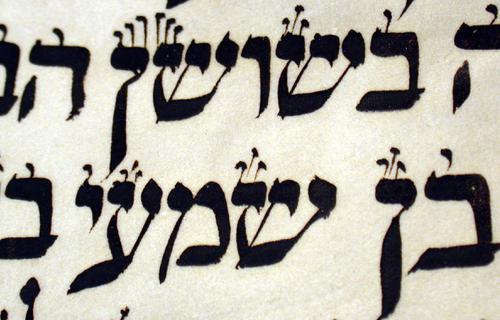 ה בשושן הב
בן שמעי ב